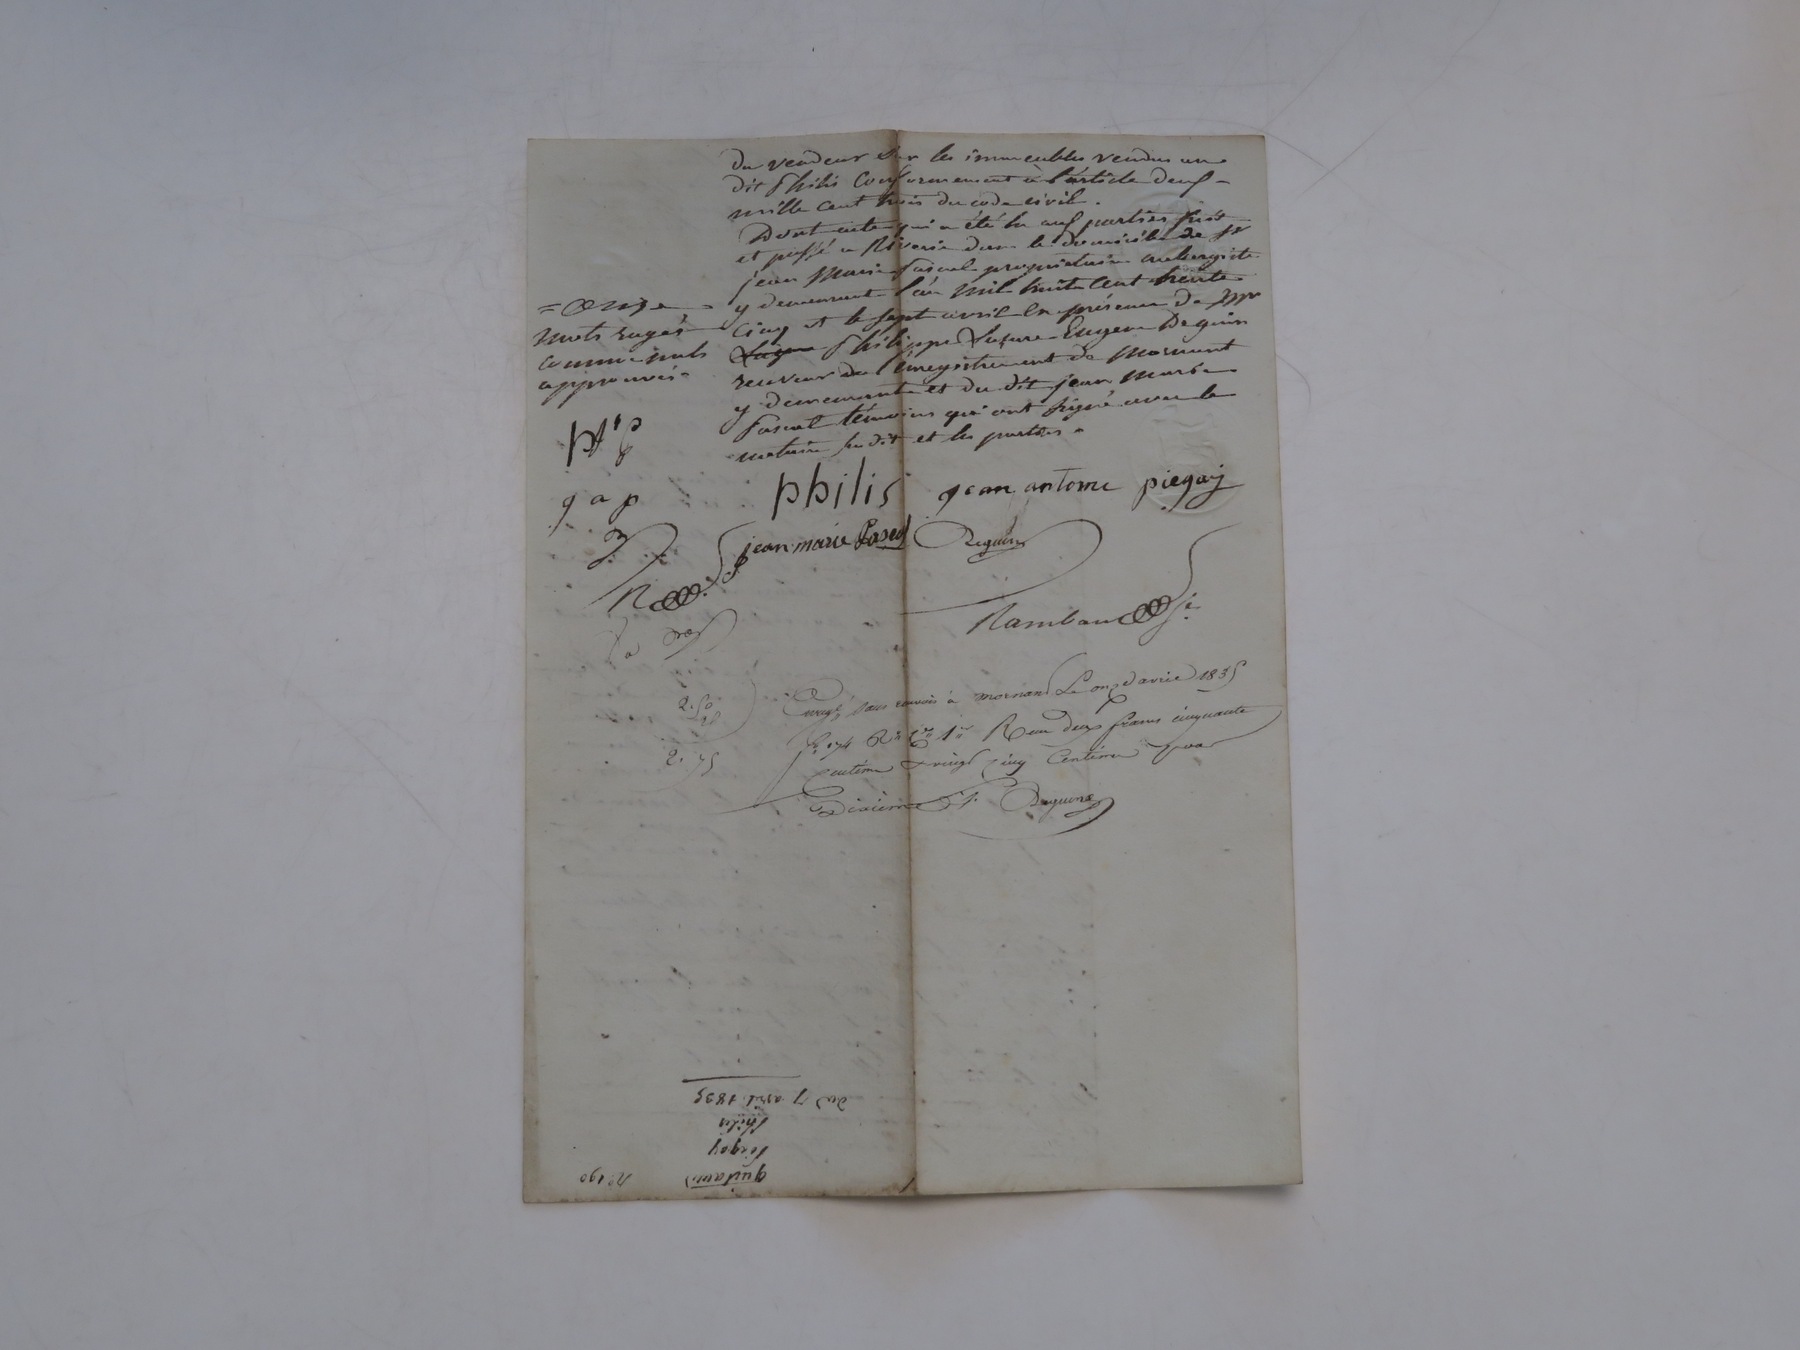 du vendeur sur les immeubles vendus au
dit Philis conformément à l'article deux
mille cent trois du code civil.
Dont acte qui a été lu aux parties fait
et passé a Riverie dans le domicile de Sr
jean Marie Pascal propriétaire aubergiste
y demeurant l'an Mil huit cent trente
cinq et le sept avril en présence de Mr
Philippe Eugene Deguin
receveur de l'enregistrement de Mornant
y demeurant et du dit jean Marie
Pascal témoins qui ont signé avec le
notaire sudit et les parties.
= onze
mots rayés
comme nuls
approuvés
g a p
philis jean antoine piegay
jean marie Pascal Deguin
Rambaud
2.50
25
2.75
Enregté sans renvois à mornant Le onze avril 1835
fo 174 Ro Reçu deux francs cinquante
centimes vingt cinq centimes pour
Dixième Deguin
No 190
quittance
Piegay
Philis
du 7 avril 1835